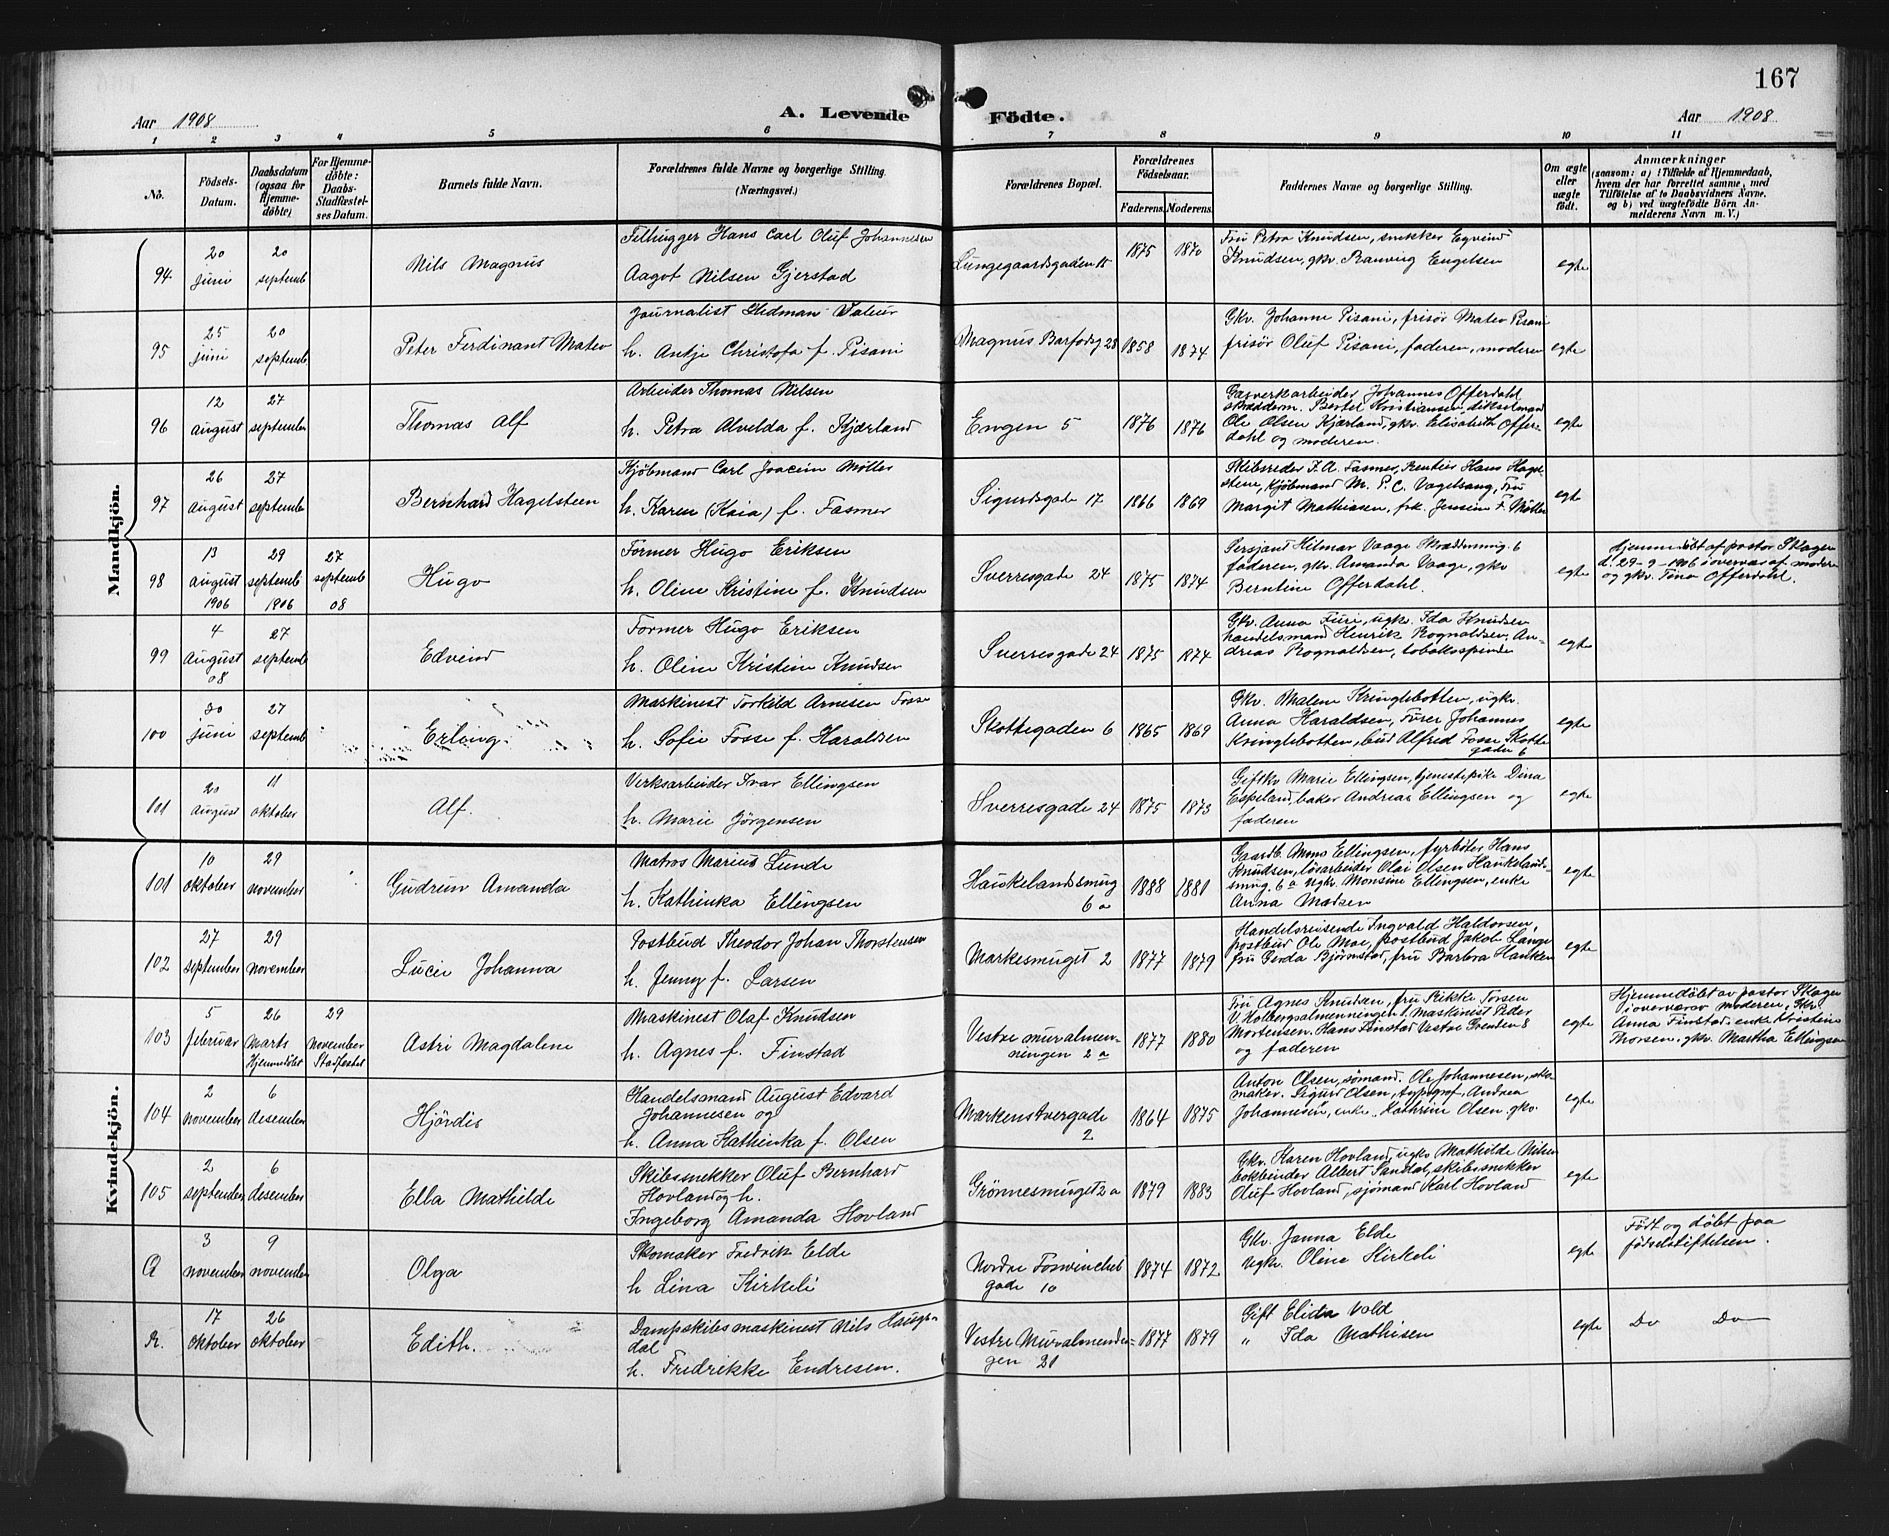 167
Aar 1908 A. Levende Födte. Aar 1908
1 2 3 4 5 6 7 8 9 10 11
No.
Födsels-Datum.
Daabsdatum (ogsaa for Hjemme-döbte)
For Hjemme-döbte: Daabs-Stadfæstel-ses Datum.
Barnets fulde Navn.
Forældrenes fulde Navne og borgerlige Stilling. (Næringsvei.)
Forældrenes Bopæl.
Forældrenes Födselsaar.
Faderens. Moderens.
Faddernes Navne og borgerlige Stilling.
Om ægte eller uægte födt.
Anmærkninger
(saasom: a) i Tilfælde af Hjemmedaab, hvem der har forrettet samme, med Tilföielse af to Daabsvidners Navne, og b) ved uægtefödte Börn An-melderens Navn m. V.)
Mandkjön.
94 20 juni 20 septemb Nils Magnus
Tilhugger Hans Carl Oluf Johannesen
Aagot Nilsen Gjerstad
Lungegaardsgaden 15 1875 1870
Fru Petra Knudsen, snekker Eqvind
Knudsen, gkv. Ranveig Engelsen
egte
95 25 juni 20 septemb Peter Ferdinant Mateo
Journalist Valeur
h. Antje Christofa f. Pisani
Magnus Barfodsg 28 1858 1874
Gkv. Johanne Pisani, frisör Mateo Pisani
frisör Oluf Pisani, faderen, moderen
egte
96 12 august 27 september Thomas Alf
Arbeider Thomas Nilsen
h. Petra Alvilda f. Kjærland
Engen 5 1876 1876
Gasverkarbeider Johannes Offerdahl
Bertel Kristiansen,
Ole Olsen Kjærland, gkv. Elisabeth Offer-
dahl og moderen.
egte
97 26 august 27 septemb Bernhard Hagelsteen
Kjøbmand Carl Joacim Møller
h. Karen (Kaia) f. Fasmer
Sigurdsgade 17 1866 1869
Skibsreder F. A. Fasmer, Rentier Hans Hagel-
steen, Kjøbmand M. P. C. Vogelsang, Fru
Margit Mathiasen, frk. Jensine F. Møller
egte
98 13 august 1906 29 septemb 1906 27 septemb 08 Hugo
Former Hugo Eriksen
h. Oline Kristine f. Knudsen
Sverresgade 24 1875 1874
Persjant Hilmar Vaage Skreddersmug. 6
faderen, gkv. Amanda Vaage, gkv
Berntine Offerdahl.
egte
Hjemmedöbt af pastor Skagen
d. 29-9-1906 i overvær af moderen
og gkv. Tina Offerdahl.
99 4 August 08 27 septemb Edveind
Former Hugo Eriksen
h. Oline Kristine Knudsen
Sverresgade 24 1875 1874
Gkv. Anna Furi, ugkv. Ida Knudsen
handelsmand Henrik Rognaldsen, An-
dreas Rognaldsen, tobaksspinder
egte
100 30 juni 27 septemb Erling.
Maskinest Torkild Arnesen Fosse
h. Sofie Fosse f. Haraldsen
Skottegaden 6 1865 1869
Gkv. Malene Kringlebotten, ugkv.
Anna Haraldsen, Johannes
Kringlebotten, bud Alfred Fosse Skotte
gaden 6
egte
101 20 August 11 oktober Alf.
Verksarbeider Ivar Ellingsen
h. Marie Jörgensen
Sverresgade 24 1875 1873
Giftkv Marie Ellingsen, tjenestepike Dina
Espeland, baker Andreas Ellingsen og
faderen
egte
Kvindekjön.
101 10 oktober 29 november Gudrun Amanda
Matros Marius Lunde
h. Kathinka Ellingsen
Haukelandsmug 6 a 1888 1881
Gaardb. Amns Ellingsen, fyrbøter Hans
Knudsen, løsarbeider Olai Olsen Haukeland-
smug. 6a ugkv. Monsine Ellingsen, enke
Anna Madsen
egte
102 27 september 29 november Lucie Johanna
Postbud Theodor Johan Thorstensen
h. Jenny f. Larsen
Markesmuget 2 1877 1879
Handelsreisende Ingvald Haldorsen,
postbud Ole Moe, postbud Jakob Lange
fru Gerda Bjørnstad, fru Barbra Hauken
egte
103 5 februar 26 Marts Hjemmedöbt 29 november Stadfæstet Astri Magdalene
Maskinest Olaf Knudsen
h. Agnes f. Finstad
Vestre muralmen-
ningen 2 a 1877 1880
Fru Agnes Knudsen, fru Rikke Torsen
V. Holbergsalmenningen 1. maskinist Peder
Mortensen. Hans Finstad Vestre 8
og faderen
egte
Hjemmedöbt av pastor Skagen
i overværor moderen, Gkv.
Anna Finstad, enke Kristine
Thorsen, gkv. Martha Ellingsen
104 2 november 6 desember Hjördis
Handelsmand August Edvard
Johannesen og
h. Anna Kathinka f. Olsen
Markens tvergade
2 1864 1875
Anton Olsen, sømand. Ole Johannesen, sko-
maker. Sigurd Olsen, typograf, Andrea
Johannesen, enke, Kathrine Olsen gkv.
egte
105 2 september 6 desember Ella Mathilde
Skibssnekker Oluf Bernhard
Hovland og h.
Ingeborg Amanda Hovland
Grönnesmuget 2a 1879 1883
Gkv. Karen Hovland, ugkv Mathilde Nilsen
bokbinder Albert Sandal, skibssnekker
Oluf Hovland, sjømand Karl Hovland
egte
a 3 november 9 november Olga
Skomaker Fredrik Elde
h Lina Kirkeli
Nordre Foswinckel
gade 10 1874 1872
Gkv. Janna Elde
ugkv. Oline Kirkeli
egte
Födt og döbt paa
födselstiftelsen.
R. 17 oktober 26 oktober Edith.
Dampskibsmaskinest Nils Haug-
dal
h. Fredrikke Endresen.
Vestre Muralmendin-
gen 21 1877 1879
Gift Elida Vold
" Ida Mathisen
egte
Do Do